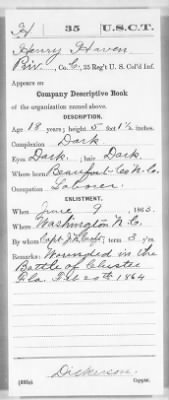 H 35 U.S.C.T.
Henry Haven
Priv., Co. C, 35 Reg't U.S. Col'd Inf.
Appears on
Company Descriptive Book
of the organization named above.
DESCRIPTION.
Age 18 years; height 5 feet 1½ inches.
Complexion Dark
Eyes Dark; hair Dark.
Where born Beaufort Co N.C.
Occupation Laborer
ENLISTMENT.
When June 9, 1863.
Where Washington N.C.
By whom Capt. term 3 y'rs.
Remarks: Wounded in the
Battle of Olustee
Fla. Feb 20th 1864
Dickerson
Copyist.